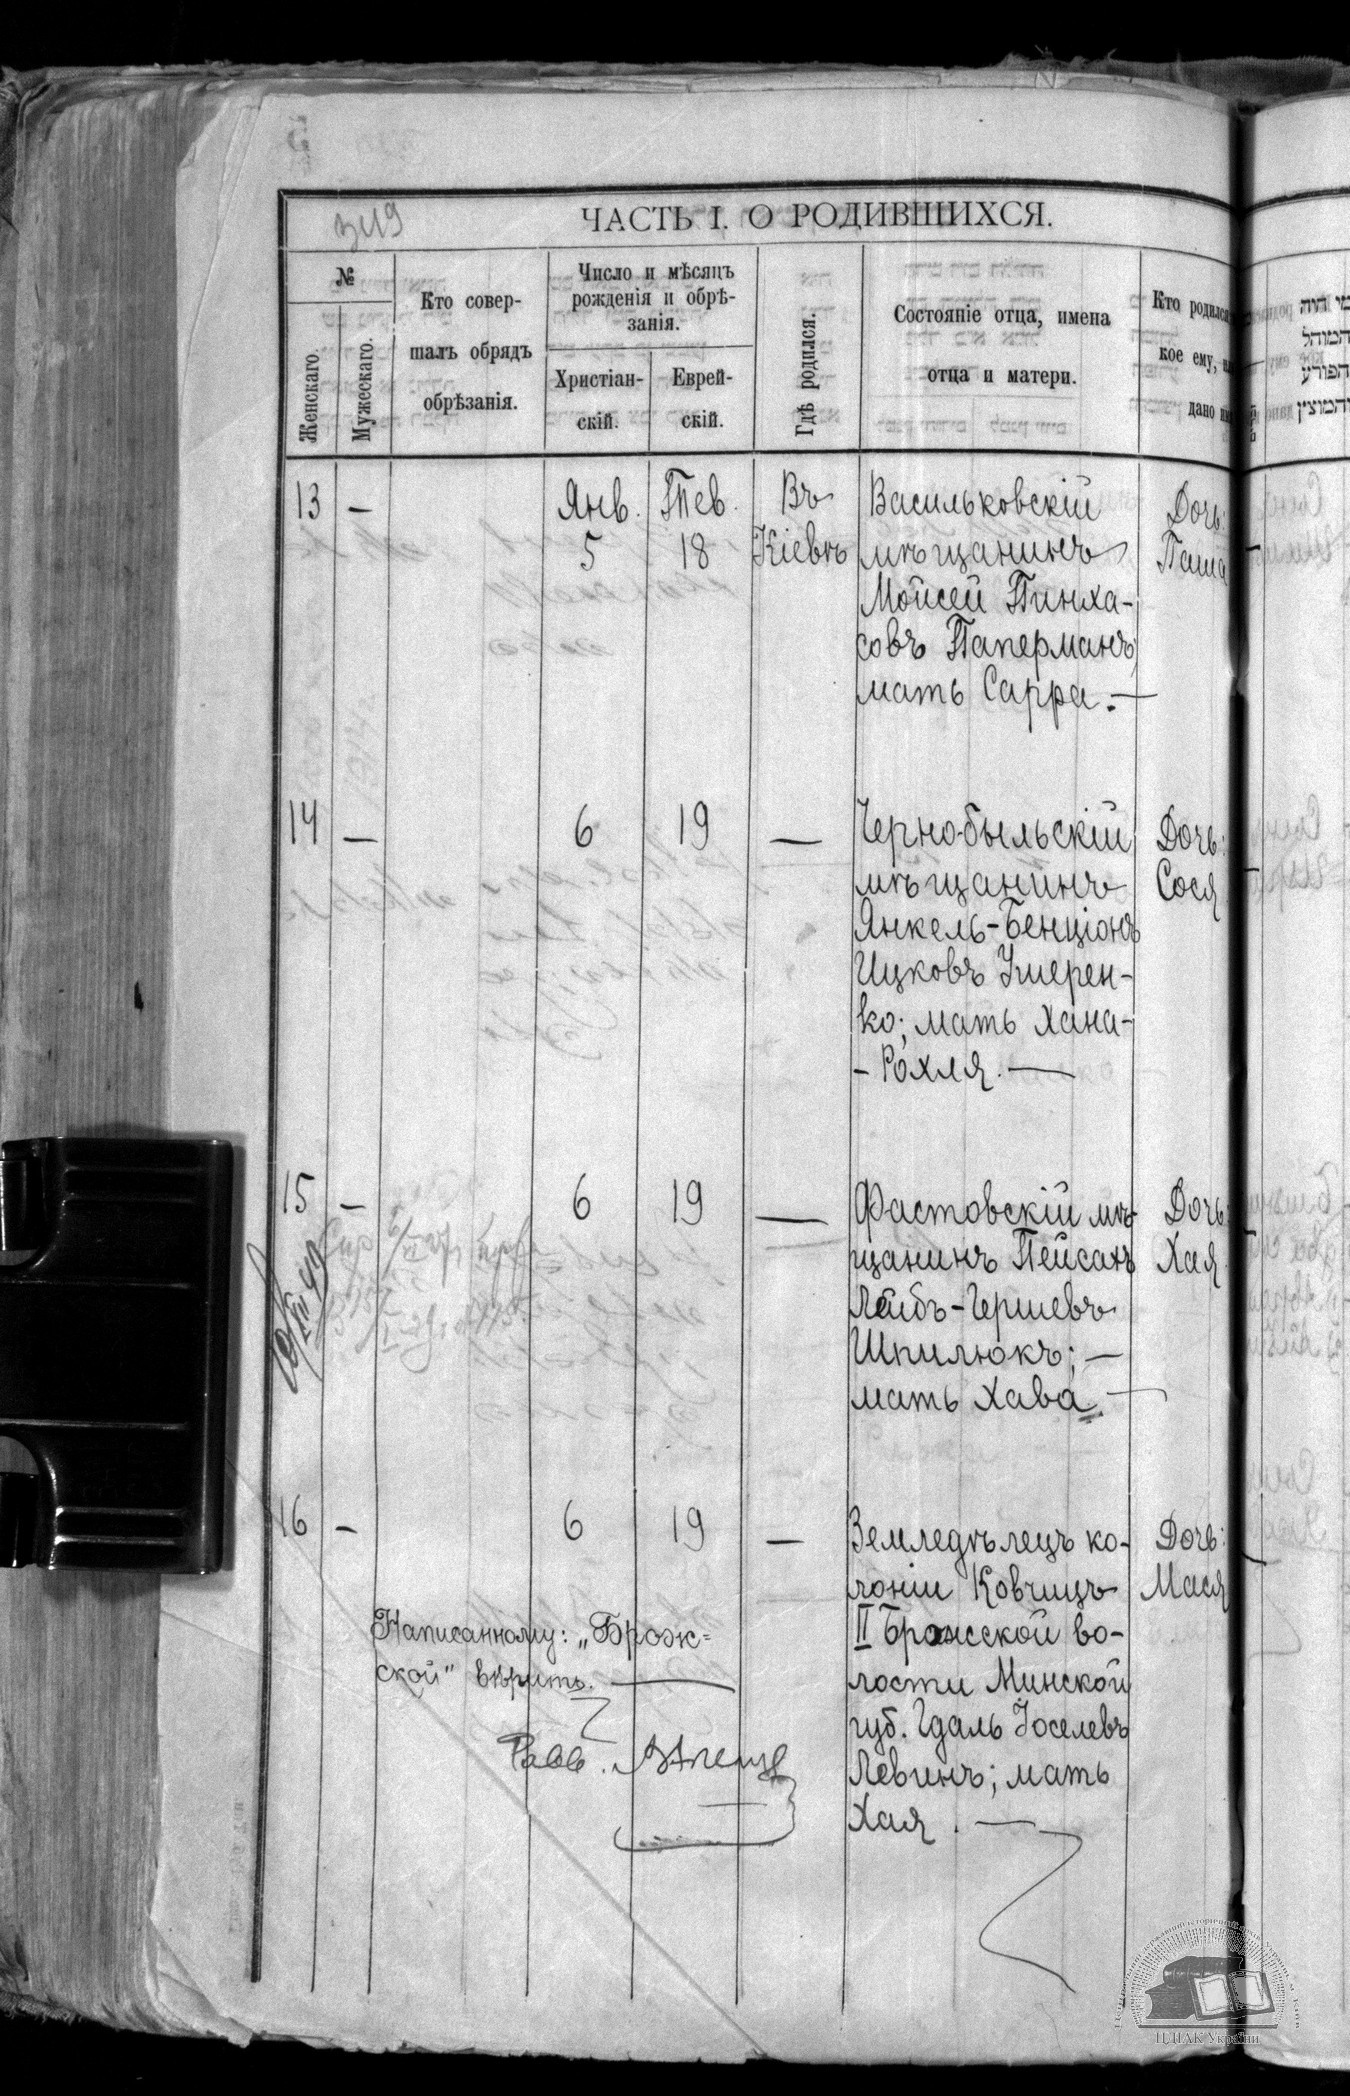 349
ЧАСТЬ I. О РОДИВШИХСЯ.
№
Женскаго.
Мужескаго.
Кто совер-
шалъ обрядъ
обрѣзанія.
Число и мѣсяцъ
рожденія и обрѣ-
занія.
Христіан-
скій.
Еврей-
скій.
Гдѣ родился.
Состояніе отца, имена
отца и матери.
Кто родился
кое ему, и
дано им
13 — Янв. 5 Тев. 18 Въ Кіевѣ
Васильковскій
мѣщанинъ
Мойсей Пинха-
совъ Паперманъ,
мать Сарра. —
Дочь:
Паша
14 — 6 19 —
Чернобыльскій
мѣщанинъ
Янкель-Бенціонъ
Ицковъ Умерен-
ко; мать Хана-
-Рохля. —
Дочь:
Сося
15 — 6 19 —
Фастовскій мѣ-
щанинъ Пейсахъ
Лейбъ-Гершевъ
Шпилюкъ; —
мать Хава. —
Дочь
Хая
16 — 6 19 —
Земледѣлецъ ко-
лоніи Ковчицъ
II Брожской во-
лости Минской
губ. Гдаль Іоселевъ
Левинъ; мать
Хая. —
Дочь:
Мася
Написанному: „Брож=
ской" вѣрить. —
Равв.
ЦДІАК України